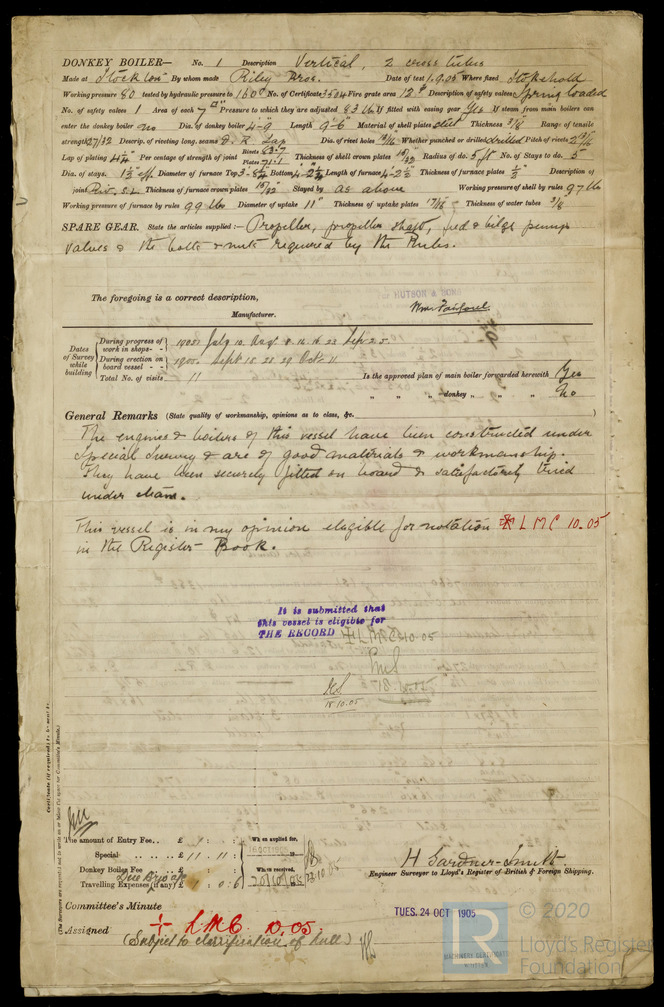 DONKEY BOILER— No. 1 Description Vertical, 2 cross tubes
Made at Stockton By whom made Riley Bros. Date of test 1.9.05 Where fixed Stokehold
Working pressure 80 tested by hydraulic pressure to 160 No. of Certificate 3524 Fire grate area 12 Description of safety valves Spring loaded
No. of safety valves 1 Area of each 7" Pressure to which they are adjusted 83 lbs If fitted with easing gear Yes If steam from main boilers can
enter the donkey boiler no Dia. of donkey boiler 4-9 Length 9-6" Material of shell plates steel Thickness 3/8 Range of tensile
strength 27/32 Descrip. of riveting long. seams D. R. Lap Dia. of rivet holes 13/16 Whether punched or drilled drilled Pitch of rivets 2 13/16
Lap of plating 4 1/4 Per centage of strength of joint Rivets 83.7 Plates 71.1 Thickness of shell crown plates 19/32 Radius of do. 5 ft No. of Stays to do. 5
Dia. of stays. 1 1/2 eff. Diameter of furnace Top 3-8 1/4 Bottom 4-2 1/4 Length of furnace 4-2 1/2 Thickness of furnace plates 1/2 Description of
joint Riv. S.L. Thickness of furnace crown plates 15/32 Stayed by as above Working pressure of shell by rules 97 lbs
Working pressure of furnace by rules 99 lbs Diameter of uptake 11" Thickness of uptake plates Thickness of water tubes 3/8
SPARE GEAR. State the articles supplied:— Propeller, propeller shaft, feed & bilge pump
valves & the bolts & nuts required by the Rules.
HUTSON & SONS
The foregoing is a correct description,
Manufacturer.
Dates of Survey while building
During progress of work in shops - - 1905 July 10. Aug 8. 14. 16. 23 Sep 2. 5.
During erection on board vessel - - 1905. Sept 18. 23. 29 Oct. 11
Total No. of visits 11 Is the approved plan of main boiler forwarded herewith Yes
" " " donkey " " " No
General Remarks (State quality of workmanship, opinions as to class, &c.)
The engines & boilers of this vessel have been constructed under
Special Survey & are of good materials & workmanship.
They have been securely fitted on board & satisfactorily tried
under steam.
This vessel is in my opinion eligible for notation LMC 10.05
in the Register Book.
It is submitted that
this vessel is eligible for
THE RECORD + LMC 10.05
18.10.05
18.10.05
Certificate (if required) to be sent to
The amount of Entry Fee .. £ 1 : : When applied for,
Special .. .. £ 11 : 11 : 16 OCT 1905
Donkey Boiler Fee .. £ : : When received,
Travelling Expenses (if any) £ 1 : 0 : 6 20/10/05 23.10.05
H Gardner-Smith
Engineer Surveyor to Lloyd's Register of British & Foreign Shipping.
Committee's Minute TUES. 24 OCT 1905
Assigned + LMC 10.05
(Subject to classification of hull)
MACHINERY CERTIFICATE
WRITTEN
© 2020
Lloyd's Register
Foundation